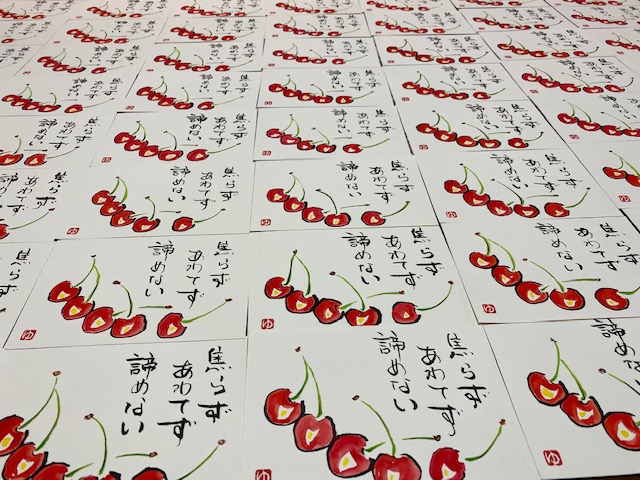 焦らず
あわてず
諦めない
ゆ